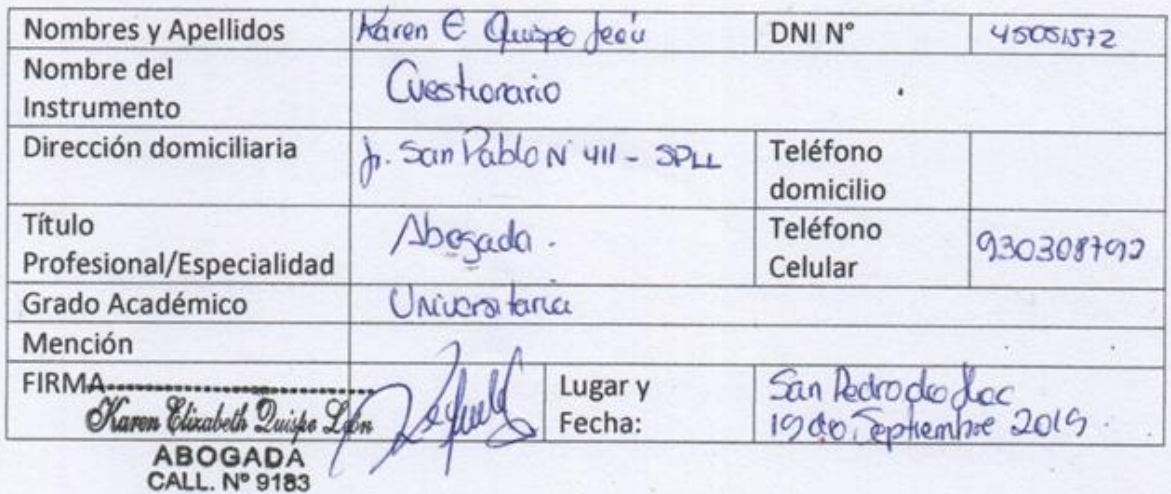 Nombres y Apellidos Karen E Quispe León DNI N° 45051572
Nombre del
Instrumento Cuestionario
Dirección domiciliaria Jr. San Pablo N° 411 - SPLL Teléfono
domicilio
Título
Profesional/Especialidad Abogada. Teléfono
Celular 930308792
Grado Académico Universitaria
Mención
FIRMA Lugar y
Fecha: San Pedro de Lloc
19 de Septiembre 2019.
Karen Elizabeth Quispe León
ABOGADA
CALL. N° 9183